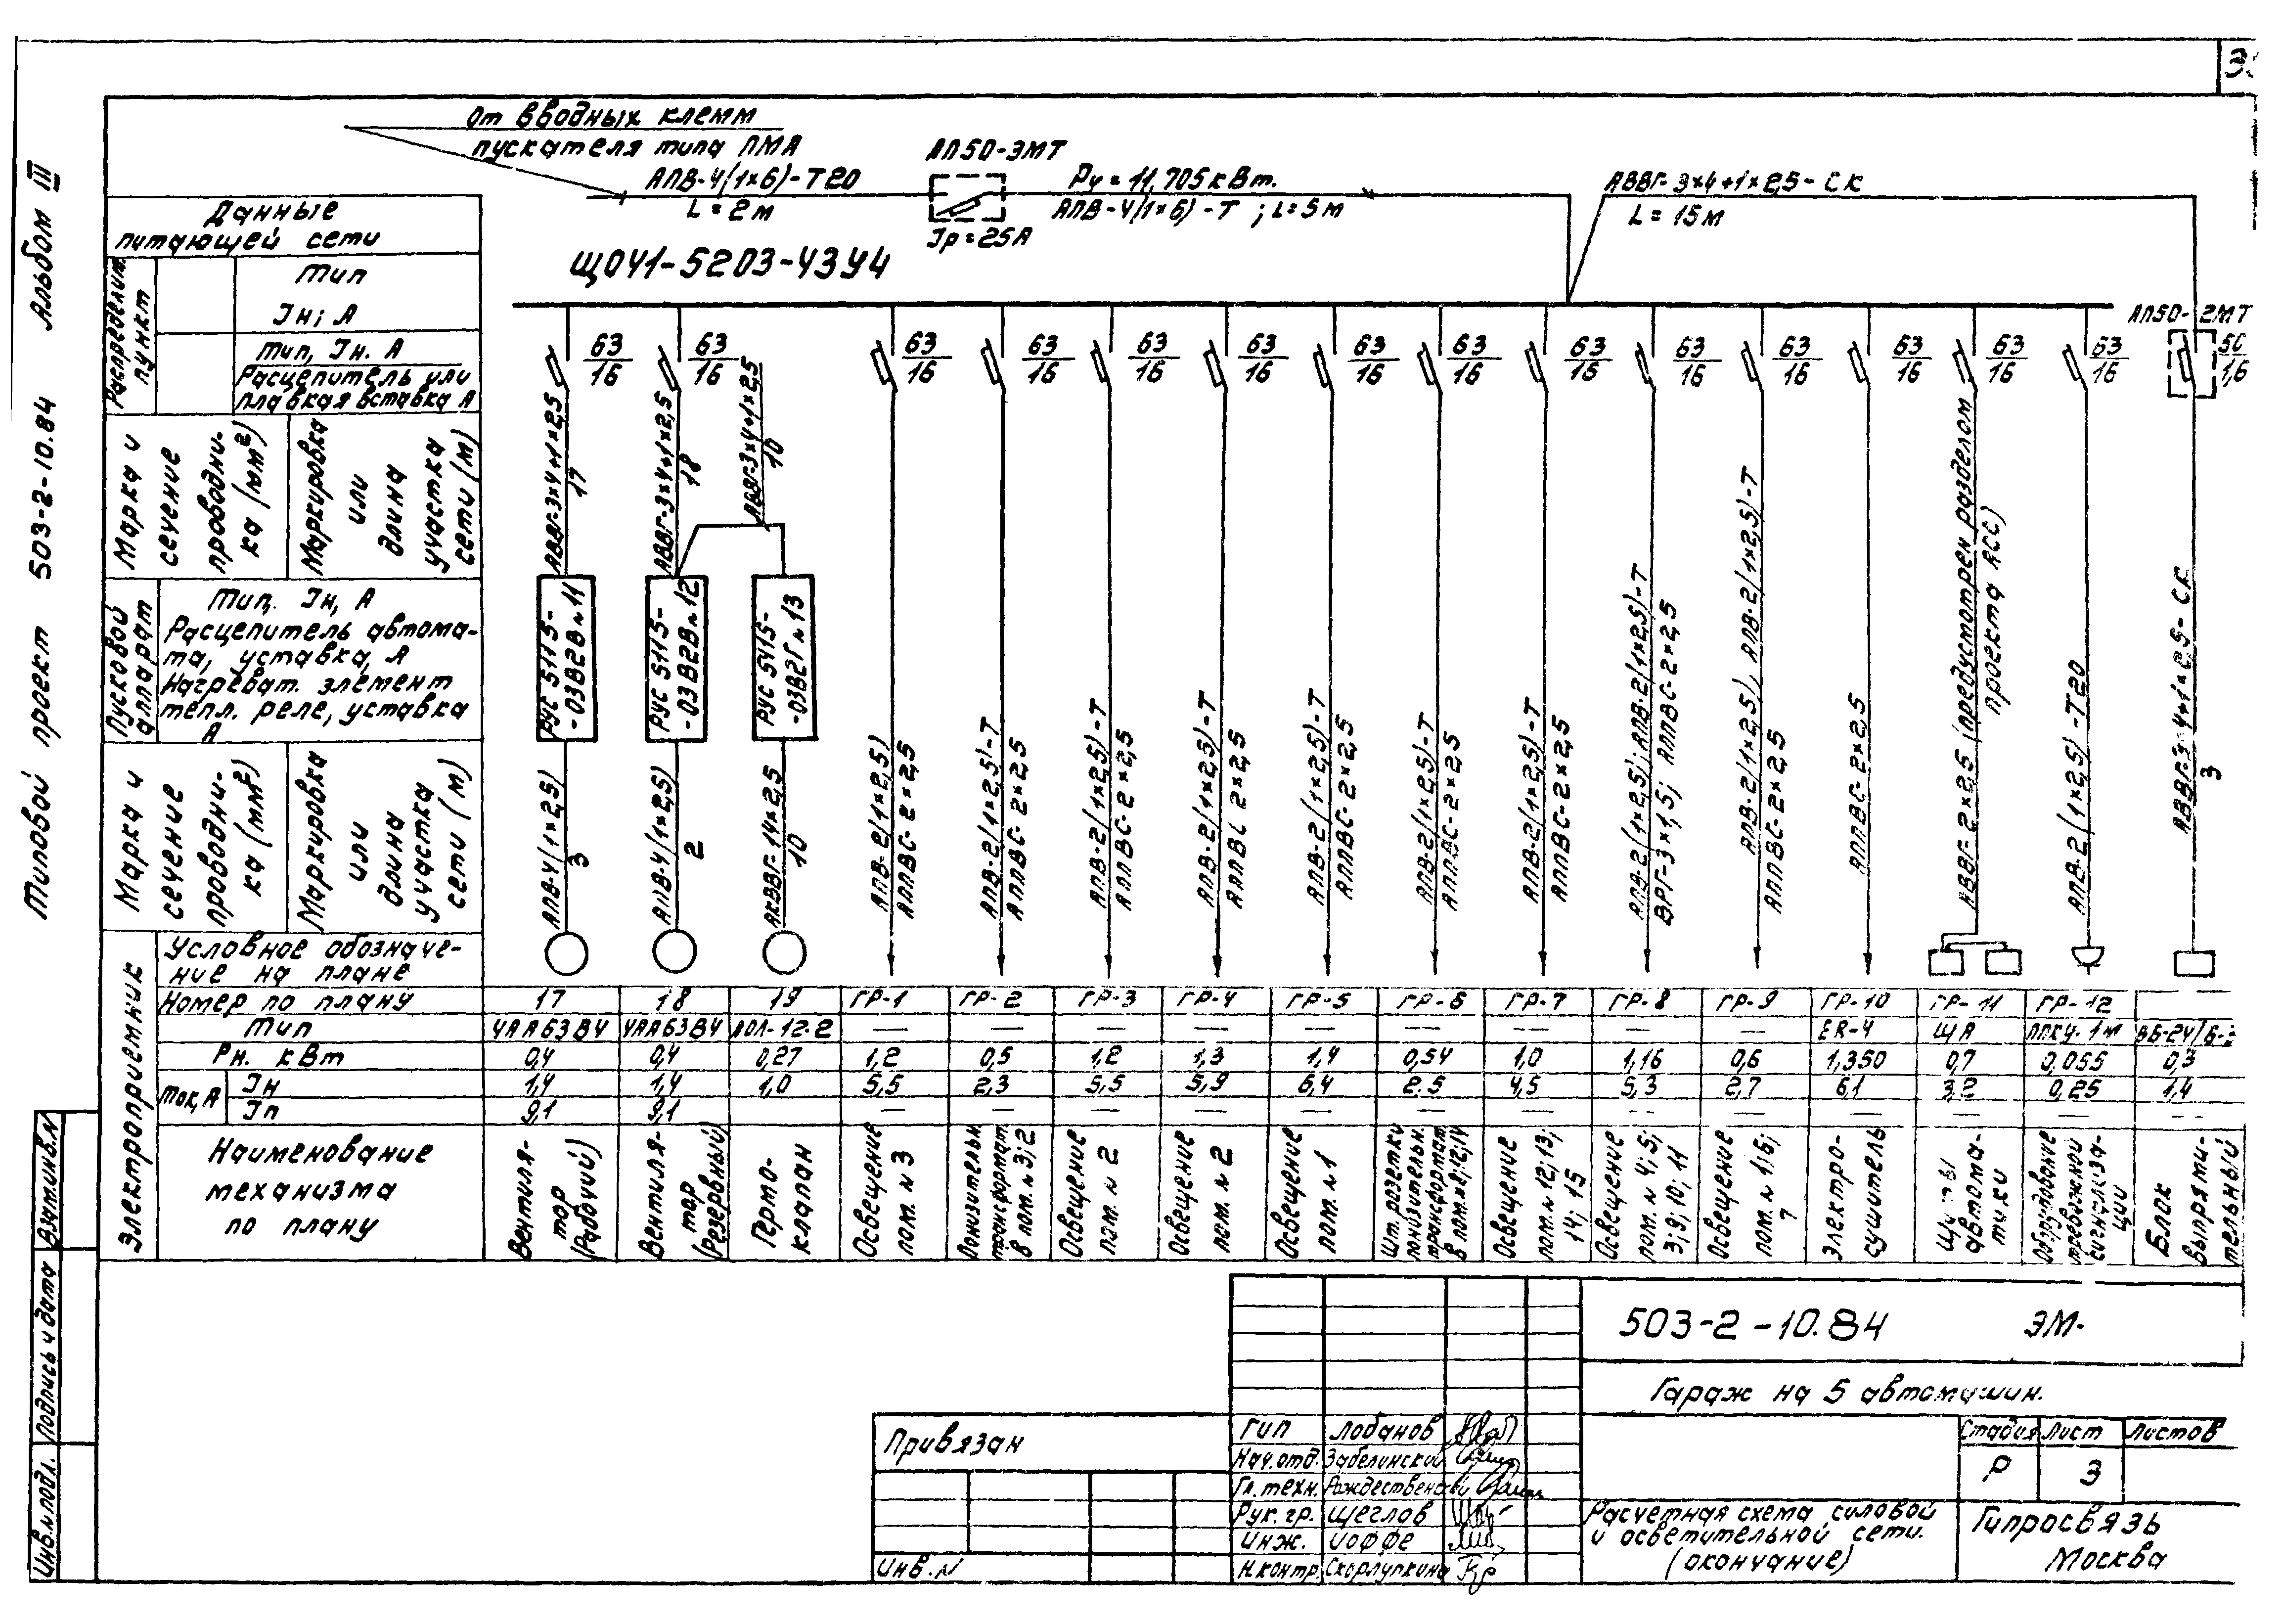 Типовой проект 503-2-10.84 Альбом III
От вводных клемм
пускателя типа ПМА
АПВ-4(1×6)-Т20
L=2м
АП50-3МТ
Iр=25А
Pу=11,705кВт.
АПВ-4(1×6)-Т; L=5м
АВВГ-3×4+1×2,5-СК
L=15м
ЩОЧ1-5203-43У4
Данные
питающей сети
Распределит.
пункт
Тип
Iн; А
Тип, Iн. А
Расцепитель или
плавкая вставка А
Марка и
сечение
проводни-
ка (мм²)
Маркировка
или
длина
участка
сети (м)
Пусковой
аппарат
Тип. Iн, А
Расцепитель автома-
та, уставка, А
Нагреват. элемент
тепл. реле, уставка
А
Марка и
сечение
проводни-
ка (мм²)
Маркировка
или
длина
участка
сети (м)
63
16
63
16
63
16
63
16
63
16
63
16
63
16
63
16
63
16
63
16
63
16
63
16
63
16
63
16
АП50-2МТ
1,6
АВВГ-3×4+1×2,5
17
АВВГ-3×4+1×2,5
18
АВВГ-3×4+1×2,5
10
РУС 5115-
-03В2В №11
РУС 5115-
-03В2В №12
РУС 5415-
-03В2Г №13
АПВ-4(1×2,5)
3
АПВ-4(1×2,5)
2
АКВВГ-14×2,5
10
АПВ-2(1×2,5)
АППВС-2×2,5
АПВ-2(1×2,5)-Т
АППВС-2×2,5
АПВ-2(1×2,5)-Т
АППВС-2×2,5
АПВ-2(1×2,5)-Т
АППВС 2×2,5
АПВ-2(1×2,5)-Т
АППВС-2×2,5
АПВ-2(1×2,5)-Т
АППВС-2×2,5
АПВ-2(1×2,5)-Т
АППВС-2×2,5
АПВ-2(1×2,5); АПВ-2(1×2,5)-Т
ВРГ-3×1,5; АППВС-2×2,5
АПВ-2(1×2,5), АПВ-2(1×2,5)-Т
АППВС-2×2,5
АППВС-2×2,5
АВВГ-2×2,5 (предусмотрен разделом
проекта АСС)
АПВ-2(1×2,5)-Т20
АВВГ-3×4+1×2,5-СК
3
Электроприемник
Условное обозначе-
ние на плане
Номер по плану 17 18 19 ГР-1 ГР-2 ГР-3 ГР-4 ГР-5 ГР-6 ГР-7 ГР-8 ГР-9 ГР-10 ГР-11 ГР-12
Тип 4АА63В4 4АА63В4 АОЛ-12-2 — — — — — — — — — ER-4 ЩА ППКУ-1м
Рн. кВт 0,4 0,4 0,27 1,2 0,5 1,2 1,3 1,4 0,54 1,0 1,16 0,6 1,350 0,7 0,055 0,3
Ток, А
Iн 1,4 1,4 1,0 5,5 2,3 5,5 5,9 6,4 2,5 4,5 5,3 2,7 6,1 3,2 0,25 1,4
Iп 9,1 9,1 — — — — — — — — — — — — —
Наименование
механизма
по плану
Вентиля-
тор
(Рабочий)
Вентиля-
тор
(Резервный)
Термо-
клапан
Освещение
пом. №3
Понизительн.
трансформат.
в пом. №3; 2
Освещение
пом. №2
Освещение
пом. №2
Освещение
пом. №1
Шт. розетки
понизительн.
трансформат.
в пом.
Освещение
пом. №12; 13;
14; 15
Освещение
пом. №4; 5;
3; 9; 10; 11
Освещение
пом. №1; 6;
7
Электро-
сушитель
Щиты
автома-
тики
Оборудование
тревожной
сигнализа-
ции
Блок
выпрями-
тельный
503-2-10.84 ЭМ-
Гараж на 5 автомашин.
Привязан
Инв. N
ГИП Лобанов
Нач. отд. Забелинский
Гл. техн.
Рук. гр. Щеглов
Инж. Иоффе
Н. контр. Скорлупкина
Стадия Лист Листов
Р 3
Расчетная схема силовой
и осветительной сети.
(окончание)
Гипросвязь
Москва
Взам.инв.N
Подпись и дата
Инв.N подл.